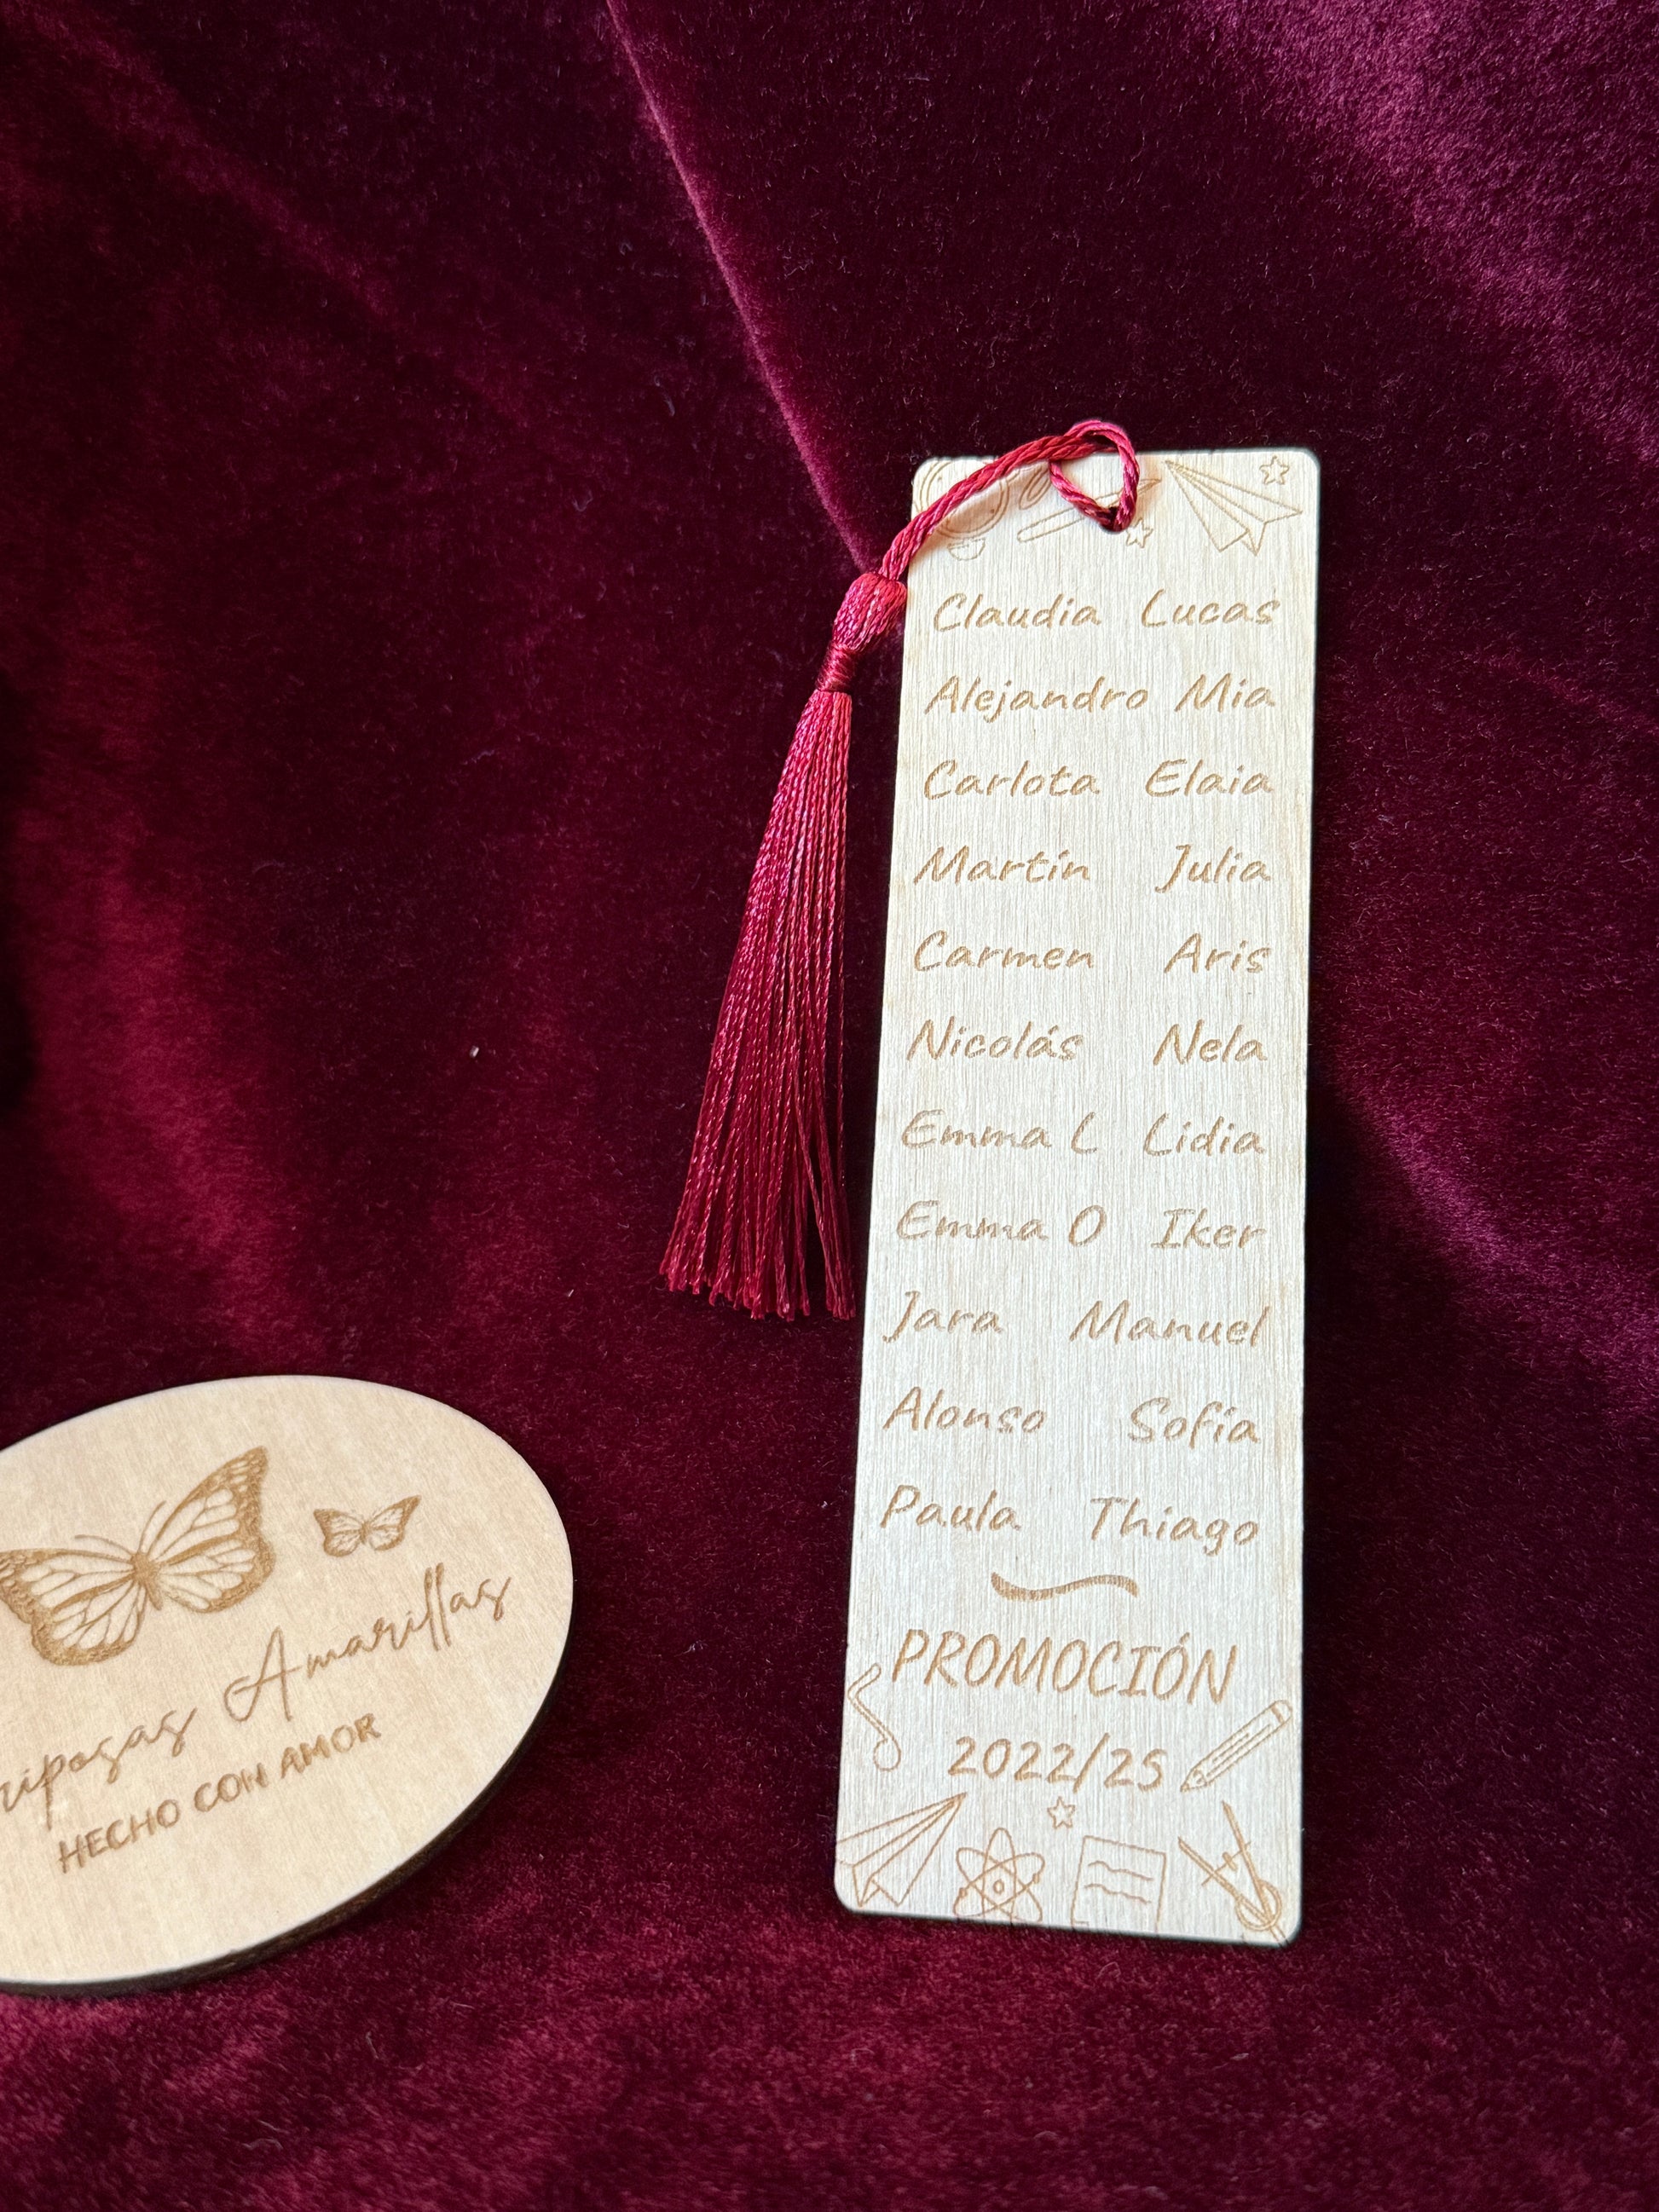 Claudia Lucas
Alejandro Mia
Carlota Elaia
Martín Julia
Carmen Aris
Nicolás Nela
Emma L Lidia
Emma O Iker
Jara Manuel
Alonso Sofía
Paula Thiago
PROMOCIÓN
2022/25
Amarillas
HECHO CON AMOR